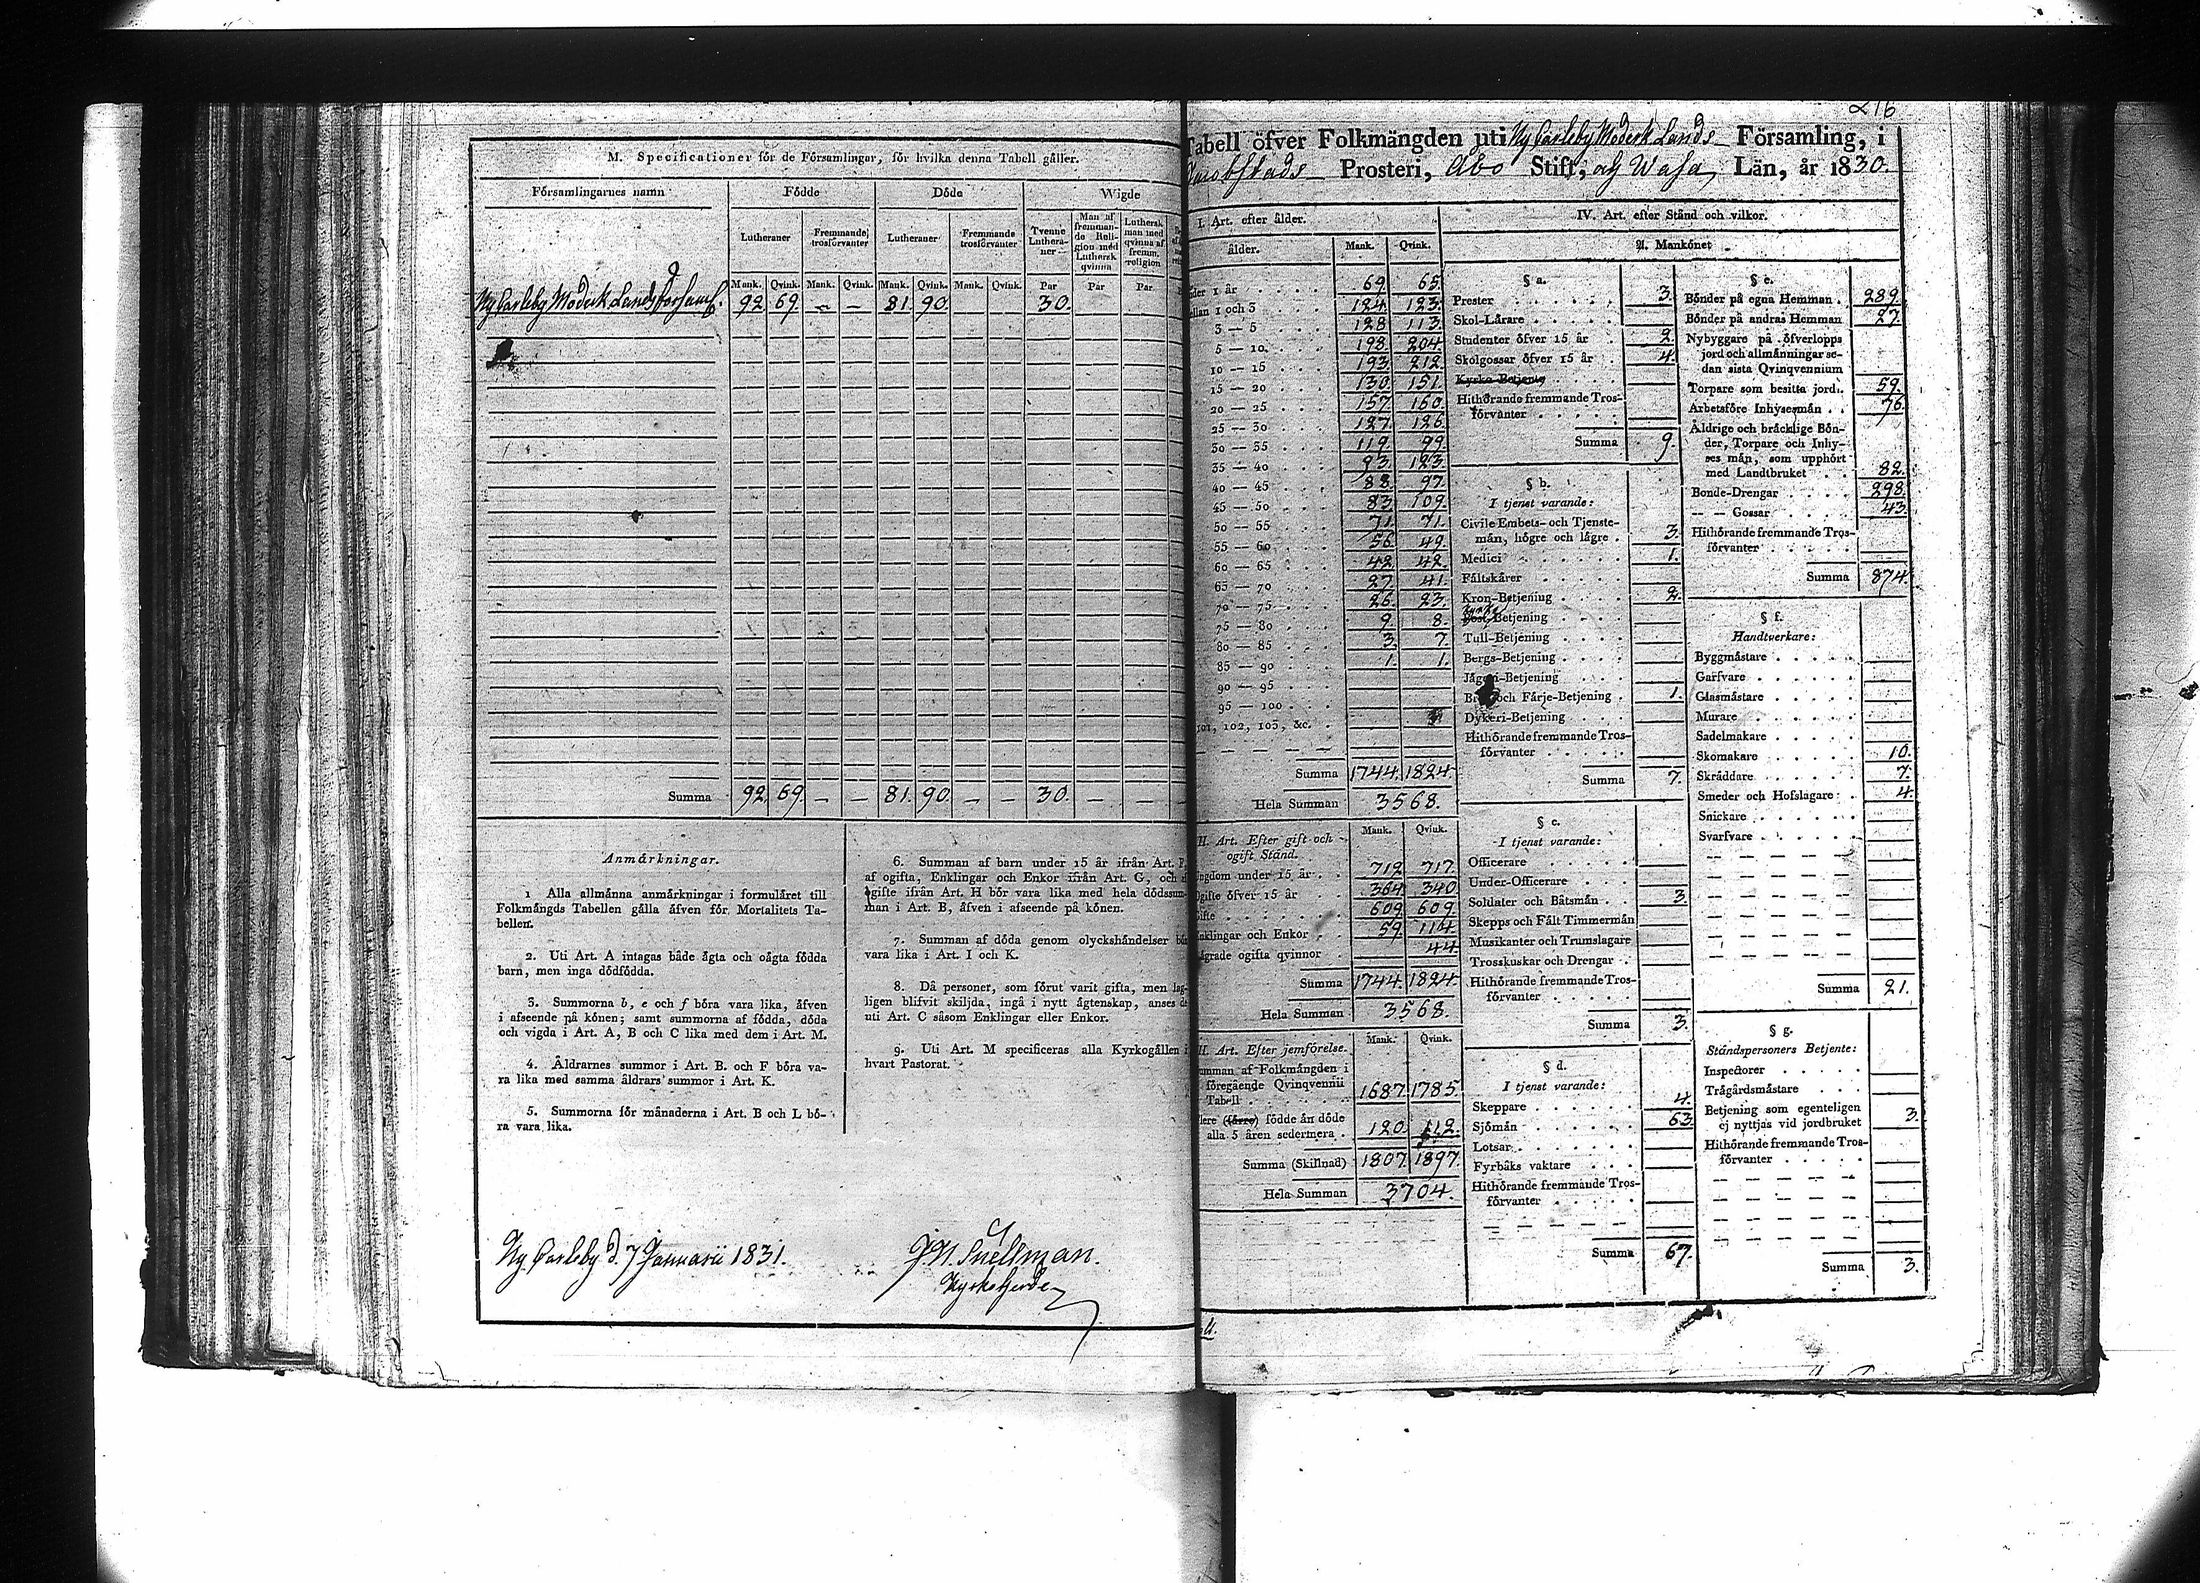 M. Specificationer för de Församlingar, för hvilka denna Tabell gäller.
Församlingarnes namn Födde Döde Wigde
Lutheraner Fremmande trosförvanter Lutheraner Fremmande trosförvanter Tvenne Lutheraner Man af fremmande Religion med Luthersk qvinna Luthersk man med qvinna af fremm. religion
Mank. Qvink. Mank. Qvink. Mank. Qvink. Mank. Qvink. Par Par Par
Ny Carleby Moderk. Lands församl. 92. 69. — — 81. 90. 30.
Summa 92. 69. — — 81. 90. — — 30. — —
Anmärkningar.
1 Alla allmänna anmärkningar i formuläret till
Folkmängds Tabellen gälla äfven för Mortalitets Ta-
bellen.
2. Uti Art. A intagas både ägta och oägta födda
barn, men inga dödfödda.
3. Summorna b, e och f böra vara lika, äfven
i afseende på könen; samt summorna af födda, döda
och vigda i Art. A, B och C lika med dem i Art. M.
4. Åldrarnes summor i Art. B. och F böra va-
ra lika med samma åldrars summor i Art. K.
5. Summorna för månaderna i Art. B och L bö-
ra vara lika.
6. Summan af barn under 15 år ifrån Art. F,
af ogifta, Enklingar och Enkor ifrån Art. G, och
gifte ifrån Art. H bör vara lika med hela dödssum-
man i Art. B, äfven i afseende på könen.
7. Summan af döda genom olyckshändelser bör
vara lika i Art. I och K.
8. Då personer, som förut varit gifta, men lag-
ligen blifvit skiljda, ingå i nytt ägtenskap, anses de
uti Art. C såsom Enklingar eller Enkor.
9. Uti Art. M specificeras alla Kyrkogällen i
hvart Pastorat.
Ny Carleby d. 7 Januarii 1831.
J. N. Snellman.
Kyrkoherde
216
Tabell öfver Folkmängden uti Ny Carleby Moderk. Lands Församling, i
Jacobstads Prosteri, Åbo Stift, och Wasa Län, år 1830.
I. Art. efter ålder.
ålder. Mank. Qvink.
under 1 år 69. 65.
mellan 1 och 3 124. 123.
3 — 5 128 113.
5 — 10. 198. 204.
10 — 15 193. 212.
15 — 20 130. 151.
20 — 25 157. 160.
25 — 30 127. 126.
30 — 35 119. 99.
35 — 40 93. 123.
40 — 45 88. 97.
45 — 50 83. 109.
50 — 55 71. 71.
55 — 60 56. 49.
60 — 65 42. 42.
65 — 70 27. 41.
70 — 75 26. 23.
75 — 80 9. 8.
80 — 85 3. 7.
85 — 90 1. 1.
90 — 95
95 — 100
101, 102, 103, &c.
Summa 1744. 1824.
Hela Summan 3568.
II. Art. Efter gift och
ogift Stånd. Mank. Qvink.
Ungdom under 15 år 712 717.
Ogifte öfver 15 år 364. 340
Gifte 609. 609.
Enklingar och Enkor 59. 114.
ogifta qvinnor 44.
Summa 1744. 1824.
Hela Summan 3568.
III. Art. Efter jemförelse. Mank. Qvink.
Summan af Folkmängden i
föregående Qvinqvennii
Tabell 1687. 1785.
Flere (färre) födde än döde
alla 5 åren sedermera 120. 112.
Summa (Skillnad) 1807. 1897.
Hela Summan 3704.
IV. Art. efter Stånd och vilkor.
A. Mankönet
§ a.
Prester 3.
Skol-Lärare
Studenter öfver 15 år 2.
Skolgossar öfver 15 år 4.
Kyrko-Betjente
Hithörande fremmande Tros-
förvanter
Summa 9.
§ b.
I tjenst varande:
Civile Embets- och Tjenste-
män, högre och lägre 3.
Medici 1.
Fältskärer
Kron-Betjening 2.
Kyrko
Post-Betjening
Tull-Betjening
Bergs-Betjening
Jägeri-Betjening
Bro- och Färje-Betjening 1.
Dykeri-Betjening
Hithörande fremmande Tros-
förvanter
Summa 7.
§ c.
I tjenst varande:
Officerare
Under-Officerare
Soldater och Båtsmän 3.
Skepps och Fält Timmermän
Musikanter och Trumslagare
Trosskuskar och Drengar
Hithörande fremmande Tros-
förvanter
Summa 3.
§ d.
I tjenst varande:
Skeppare 4.
Sjömän 63.
Lotsar
Fyrbåks vaktare
Hithörande fremmande Tros-
förvanter
Summa 67.
§ e.
Bönder på egna Hemman 289.
Bönder på andras Hemman 27.
Nybyggare på öfverlopps
jord och allmänningar se-
dan sista Qvinqvennium
Torpare som besitta jord 59.
Arbetsföre Inhysesmän 76.
Äldrige och bräcklige Bön-
der, Torpare och Inhy-
ses män, som upphört
med Landtbruket 82.
Bonde-Drengar 298.
— — Gossar 43.
Hithörande fremmande Tros-
förvanter
Summa 874.
§ f.
Handtverkare:
Byggmästare
Garfvare
Glasmästare
Murare
Sadelmakare
Skomakare 10.
Skräddare 7.
Smeder och Hofslagare 4.
Snickare
Svarfvare
Summa 21.
§ g.
Ståndspersoners Betjente:
Inspectorer
Trägårdsmästare
Betjening som egenteligen
ej nyttjas vid jordbruket 3.
Hithörande fremmande Tros-
förvanter
Summa 3.